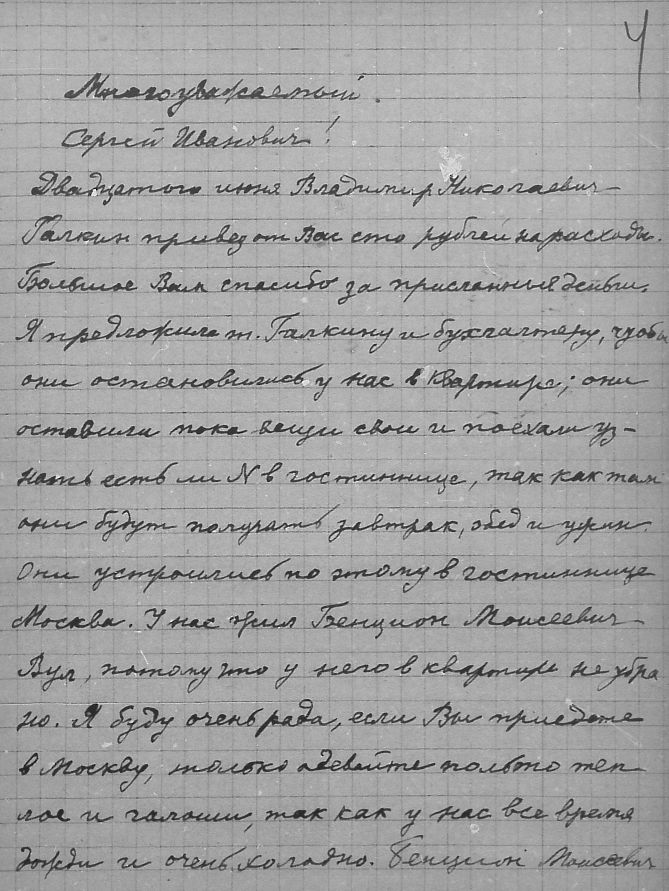 4
Многоуважаемый.
Сергей Иванович!
Двадцатого июня Владимир Николаевич
Галкин привез от Вас сто рублей на расходы.
Большое Вам спасибо за присланные деньги.
Я предложила т. Галкину и бухгалтеру, чтобы
они остановились у нас в квартире; они
оставили пока вещи свои и поехали уз-
нать есть ли N в гостиннице, так как там
они будут получать завтрак, обед и ужин.
Они устроились по этому в гостиннице
Москва. У нас жил Бенцион Моисеевич
Вул, потому что у него в квартире не убра
но. Я буду очень рада, если Вы приедете
в Москву, только одевайте пальто теп
лое и галоши, так как у нас все время
дожди и очень холодно. Бенцион Моисеевич